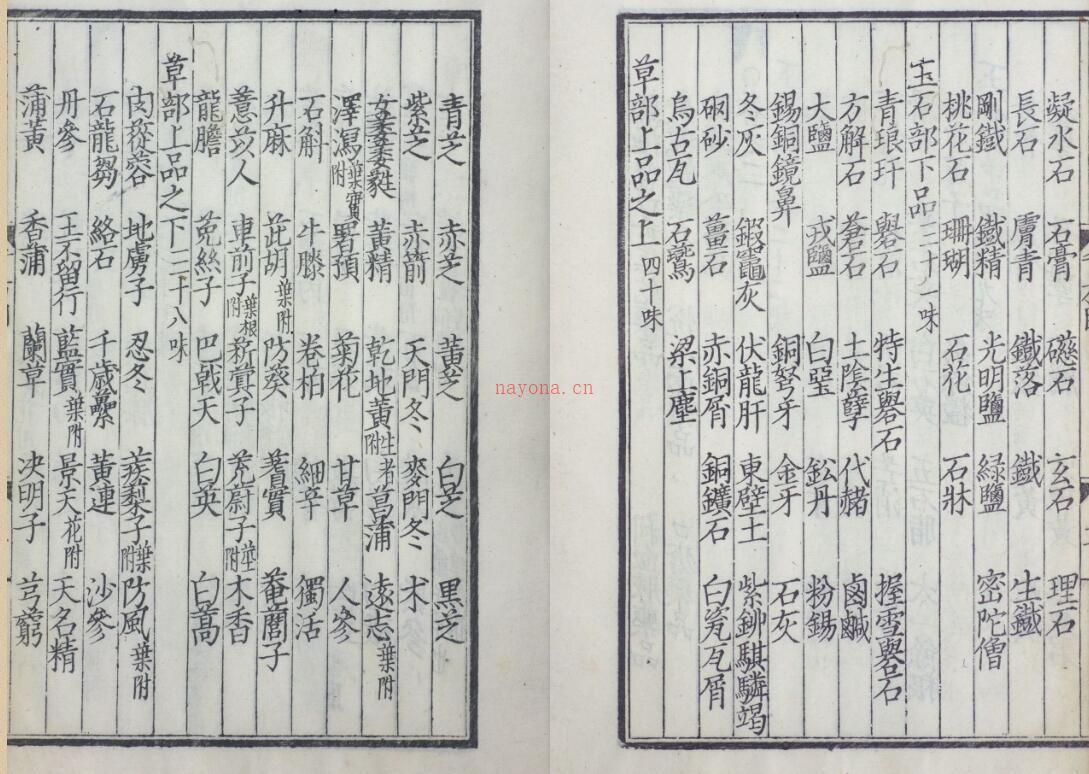 凝水石 石膏 礠石 玄石 理石
長石 膚青 鐵落 鐵 生鐵
剛鐵 鐵精 光明鹽 綠鹽 密陀僧
桃花石 珊瑚 石花 石牀
玉石部下品三十一味
青琅玕 礜石 特生礜石 握雪礜石
方解石 蒼石 土陰孽 代赭 鹵鹹
大鹽 戎鹽 白堊 鈆丹 粉錫
錫銅鏡鼻 銅弩牙 金牙 石灰
冬灰 鍛竈灰 伏龍肝 東壁土 紫鉚騏驎竭
硇砂 薑石 赤銅屑 銅鑛石 白瓷瓦屑
烏古瓦 石鷰 梁上塵
草部上品之上四十味
青芝 赤芝 黃芝 白芝 黑芝
紫芝 赤箭 天門冬 麥門冬 术
女萎萎蕤 黃精 乾地黃生者附 菖蒲 遠志葉附
澤瀉葉實附 署預 菊花 甘草 人參
石斛 牛膝 卷柏 細辛 獨活
升麻 茈胡葉附 防葵 蓍實 菴䕡子
薏苡人 車前子葉根附 菥蓂子 茺蔚子莖附 木香
龍膽 菟絲子 巴戟天 白英 白蒿
草部上品之下二十八味
肉蓯蓉 地膚子 忍冬 蒺梨子葉附 防風葉附
石龍芻 絡石 千歲虆 黃連 沙參
丹參 王不留行 藍實葉附 景天花附 天名精
蒲黃 香蒲 蘭草 決明子 芎藭
nayona.cn